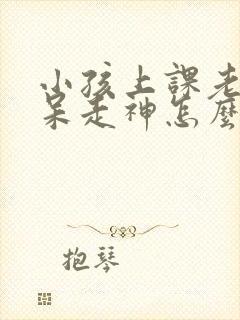 小孩上課老
呆走神怎麼
抱琴